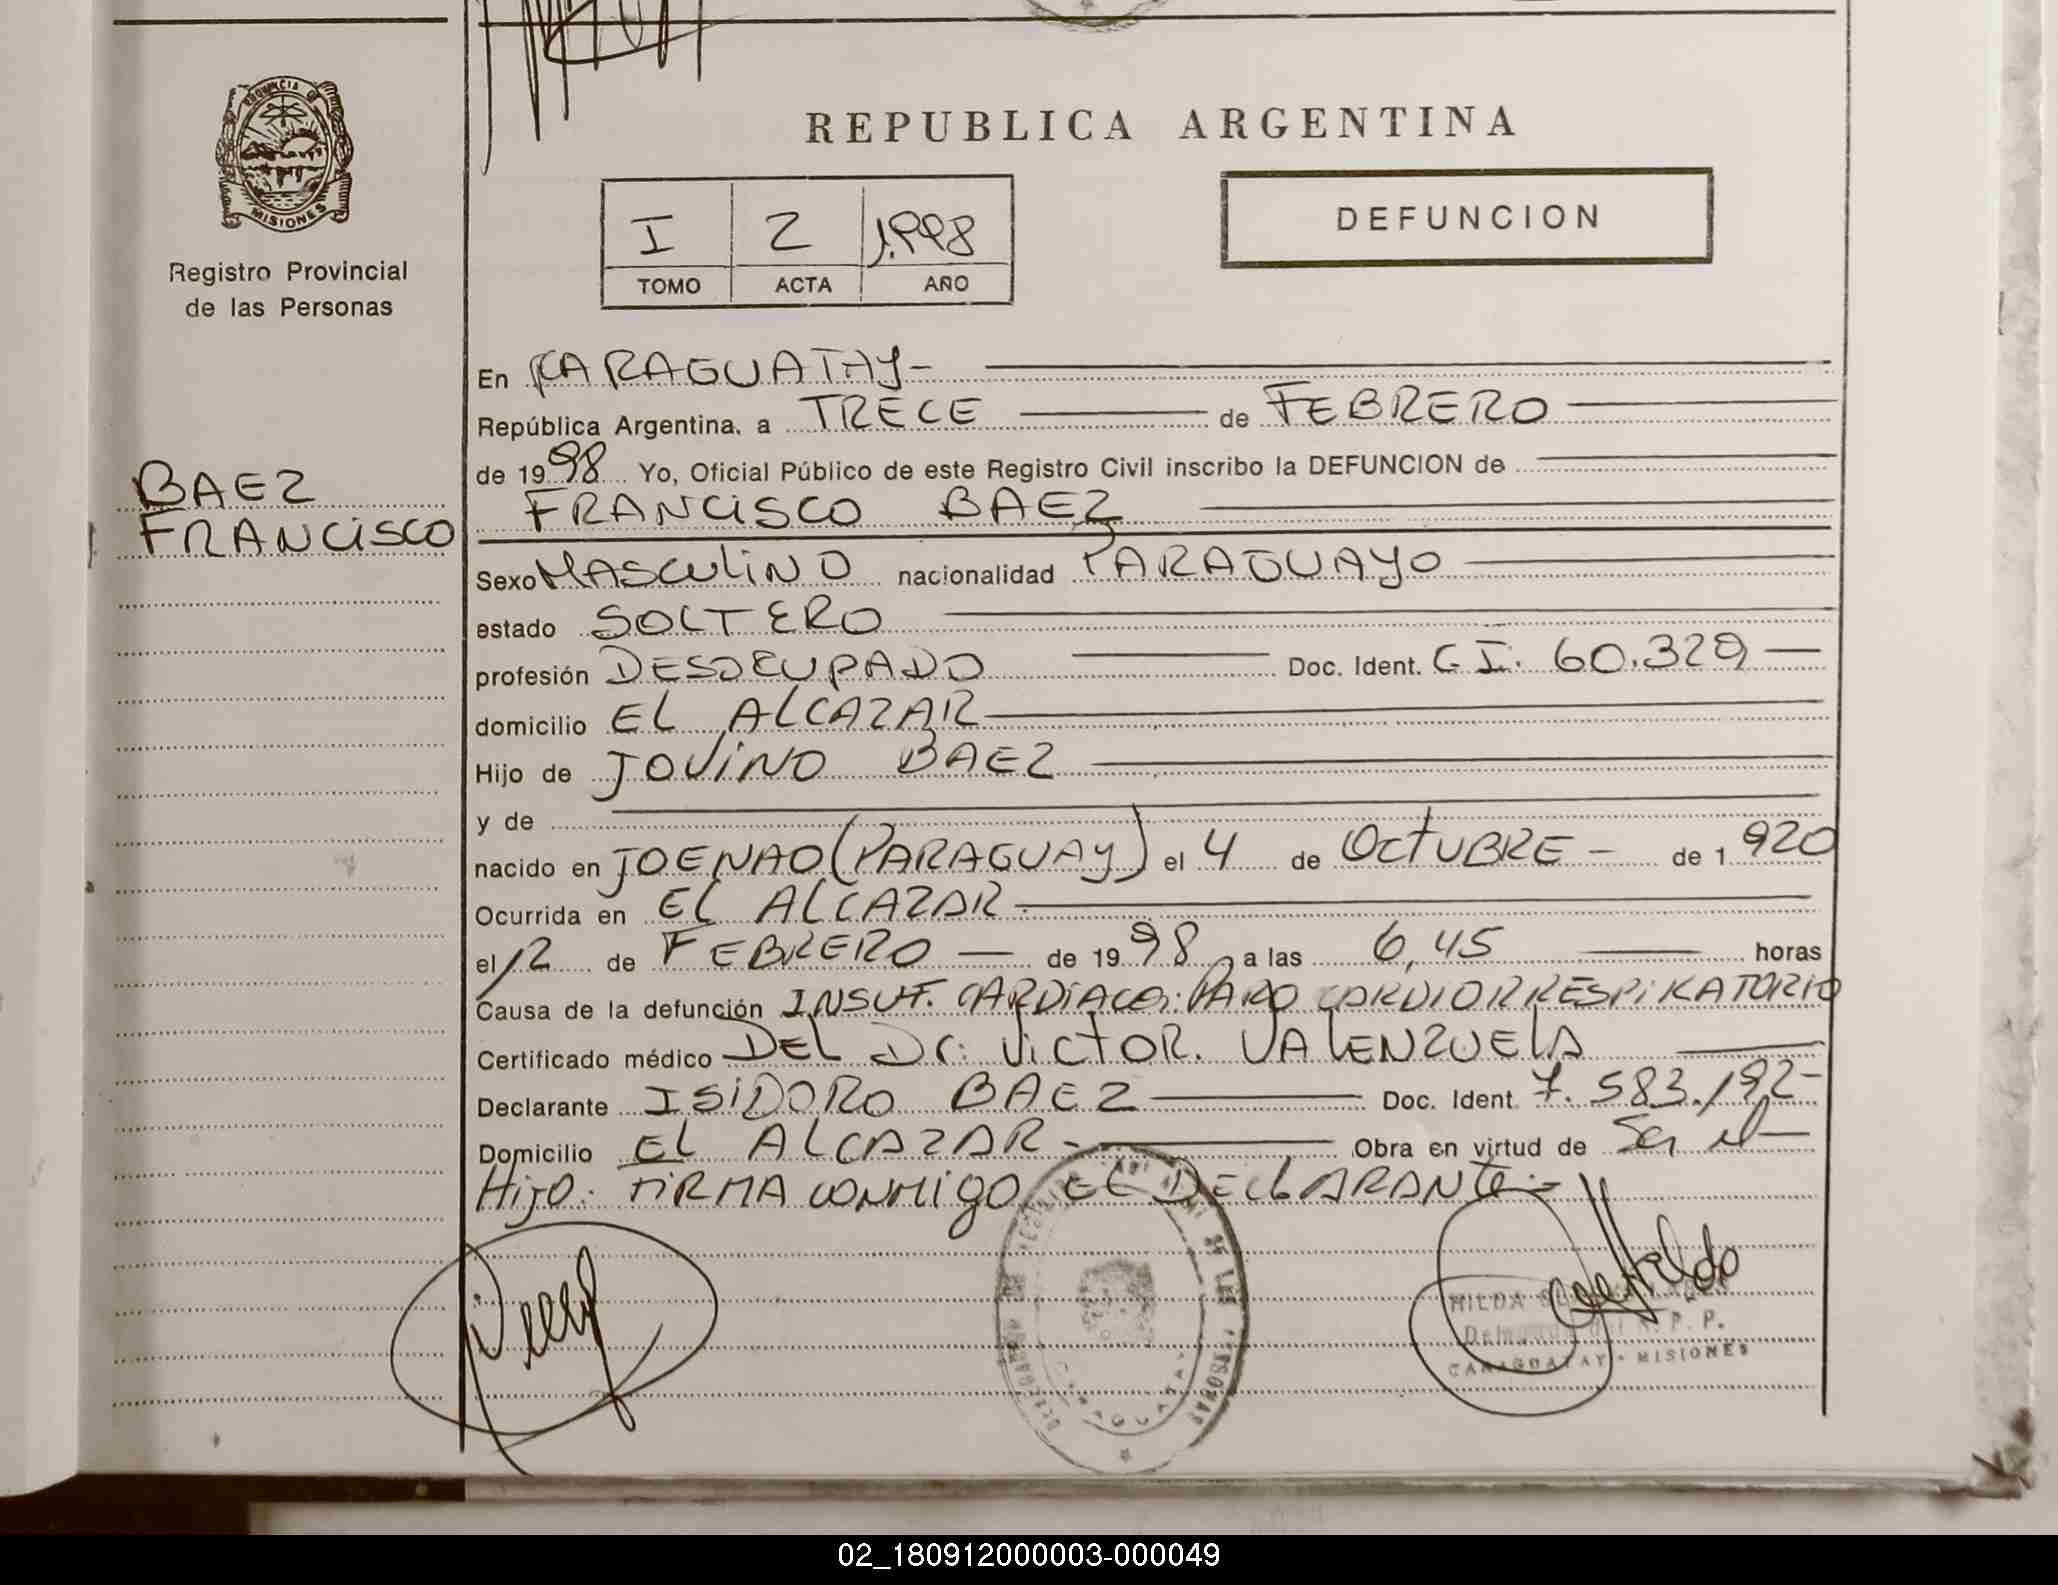 PROVINCIA D
MISIONES
Registro Provincial
de las Personas
BAEZ
FRANCISCO
REPUBLICA ARGENTINA
DEFUNCION
I 2 1.998
TOMO ACTA AÑO
En CARAGUATAY-
República Argentina, a TRECE de FEBRERO
de 1998 Yo, Oficial Público de este Registro Civil inscribo la DEFUNCION de
FRANCISCO BAEZ
Sexo MASCULINO nacionalidad PARAGUAYO
estado SOLTERO
profesión DESOCUPADO Doc. Ident. C.I. 60.329
domicilio EL ALCAZAR
Hijo de JOVINO BAEZ
y de
nacido en JOENAO (PARAGUAY) el 4 de OCTUBRE - de 1920
Ocurrida en EL ALCAZAR
el 12 de FEBRERO de 1998 a las 6,45 horas
Causa de la defunción INSUF. CARDIACA: PARO CARDIORRESPIRATORIO
Certificado médico DEL Dr. VICTOR. VALENZUELA
Declarante ISIDORO BAEZ Doc. Ident. 7.583.192-
Domicilio EL ALCAZAR - Obra en virtud de Ser el
HIJO: FIRMA CONMIGO EL DECLARANTE-
CARAGUATAY
HILDA
R. P. P.
CARAGUATAY - MISIONES
02_180912000003-000049